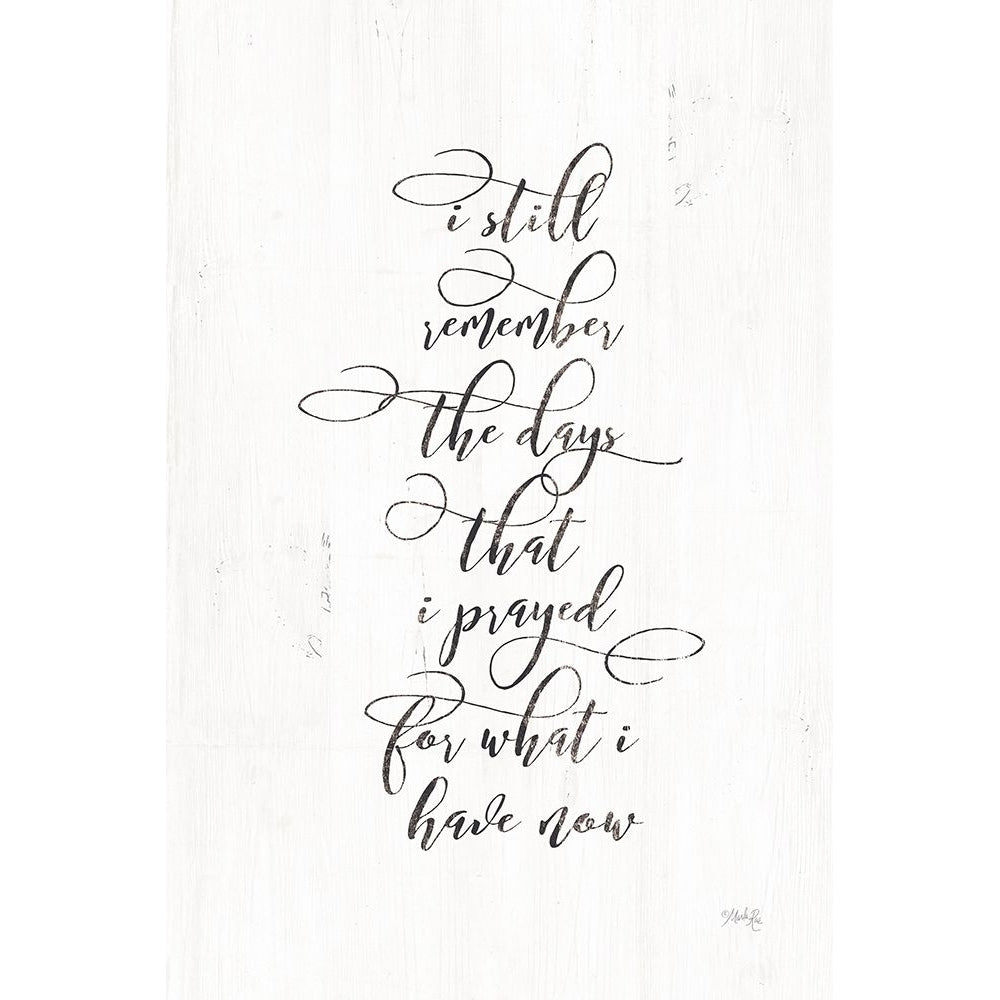 i still
remember
the days
that
i prayed
for what i
have now
©Marla Rae